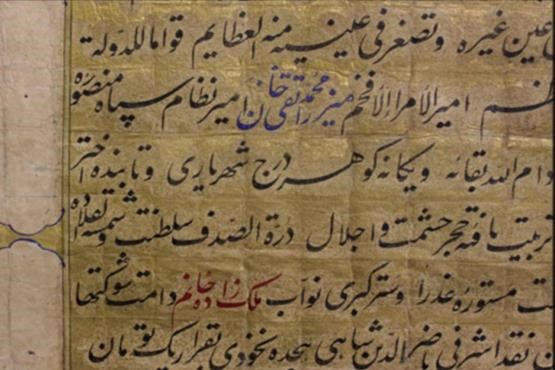 عین غیره وتصغر فی عینه منه العظایم قواما للدولة
امیر الأمرا الأفخم میرزا محمد تقی خان امیر نظام سپاه منصوره
دام الله بقائه ویکانه کوهر درج شهریاری وتابنده اختر
تربیت یافته حجر حشمت واجلال درة الصدف سلطنت وشمسه
مستوره عذرا وستر کبری نواب ملک زاده خانم دامت شوکتها
نقد اشرفی ناصر الدین شاهی هجده نخودی بقرار یک تومان